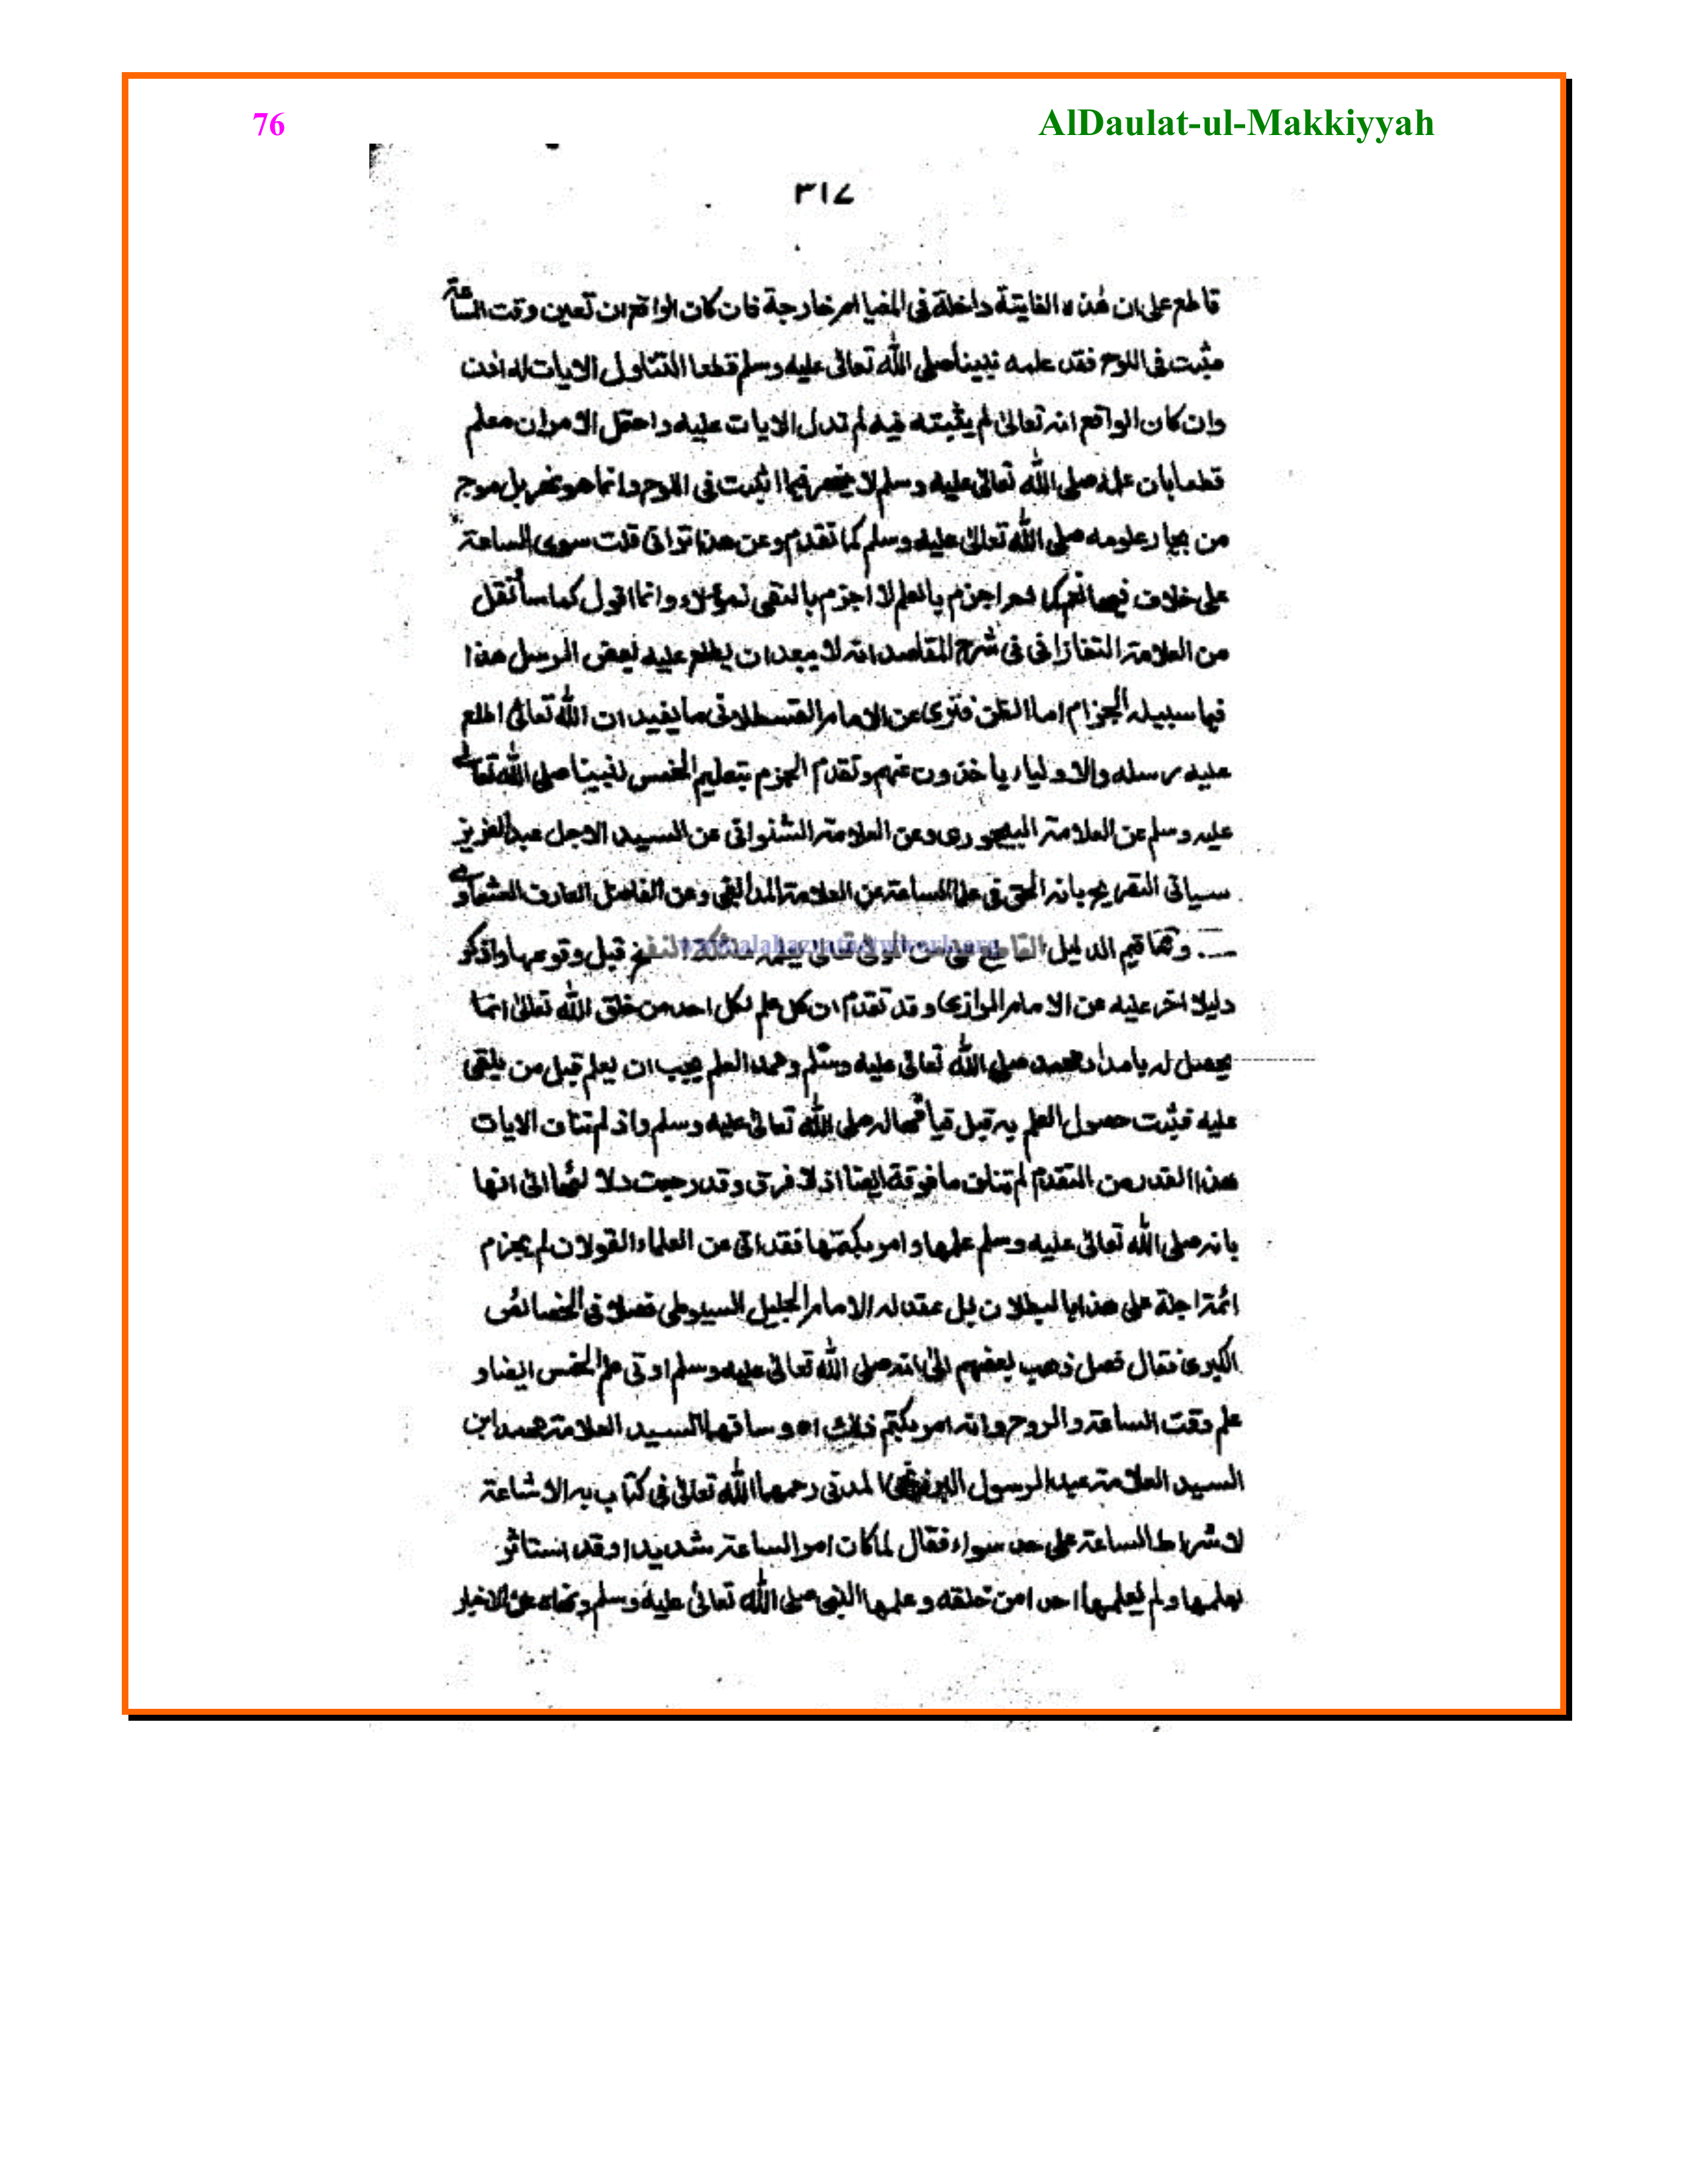 76
AlDaulat-ul-Makkiyyah
٣١٧
قاطع على ان هٰذه الغایتة داخلة فی المغیا ام خارجة فان كان الواقع ان تعین وقت الساعة
مثبت فی اللوح فقد علمه نبینا صلی الله تعالیٰ علیه وسلم قطعا لتناول الایات له اذن
وان كان الواقع انه تعالیٰ لم یثبته فیه لم تدل الایات علیه واحتمل الامران معلم
قطعا بان علمه صلی الله تعالیٰ علیه وسلم لا ینحصر فیما اثبت فی اللوح وانما هو نهر بل موج
من بحار علومه صلی الله تعالیٰ علیه وسلم كما تقدم وعن هذا ترانی قلت سوی الساعة
علی خلاف فیها نعم كما لم اجزم بالعلم لا اجزم بالنفی لهؤلاء وانما اقول كما سأنقل
من العلامة التفتازانی فی شرح المقاصد انه لا یبعد ان یطلع علیه بعض الرسل هذا
فیما سبیله الجزم اما الظن فتری عن الامام القسطلانی ما یفید ان الله تعالیٰ اطلع
علیه رسله والاولیاء یاخذون عنهم وتقدم الجزم بتعلیم الخمس لنبینا صلی الله تعالیٰ
علیه وسلم عن العلامة البیجوری وعن العلامة الشنوانی عن السید الاجل عبد العزیز
سیاتی التصریح بانه الحق فی علم الساعة عن العلامة المدابغی وعن الفاضل العارف العشماوی
وثم اقیم الدلیل القاطع علی النفخ قبل وقوعها واذكر
دلیلا اخر علیه عن الامام الرازی وقد تقدم ان كل علم لكل احد من خلق الله تعالیٰ انما
یحصل له بامداد محمد صلی الله تعالیٰ علیه وسلم وممد العلم یجب ان یعلم قبل من یلقی
علیه فثبت حصول العلم به قبل قیامها له صلی الله تعالیٰ علیه وسلم واذ لم تناف الایات
هذا القدر من التقدم لم تناف ما فوقه ایضا اذ لا فرق وقد رجعت دلالتها الی انها
بانه صلی الله تعالیٰ علیه وسلم علمها وامر بكتمها فقد اتی عن العلماء القولان لم یجزم
ائمة اجلة علی هذا بالبطلان بل عقد له الامام الجلیل السیوطی فصلا فی الخصائص
الكبری فقال فصل ذهب بعضهم الیٰ انه صلی الله تعالیٰ علیه وسلم اوتی علم الخمس ایضا و
علم وقت الساعة والروح وانه امر بكتم ذلك اه وساقها السید العلامة محمد ابن
السید العلامة عبد الرسول البرزنجی المدنی رحمهما الله تعالیٰ فی كتاب به الاشاعة
لاشراط الساعة علی حد سواء فقال لما كان امر الساعة شدیدا وقد استاثر
بعلمها ولم یعلمها احدا من خلقه وعلمها النبی صلی الله تعالیٰ علیه وسلم ونهاه عن الاخبار
www.alahazratnetwork.org